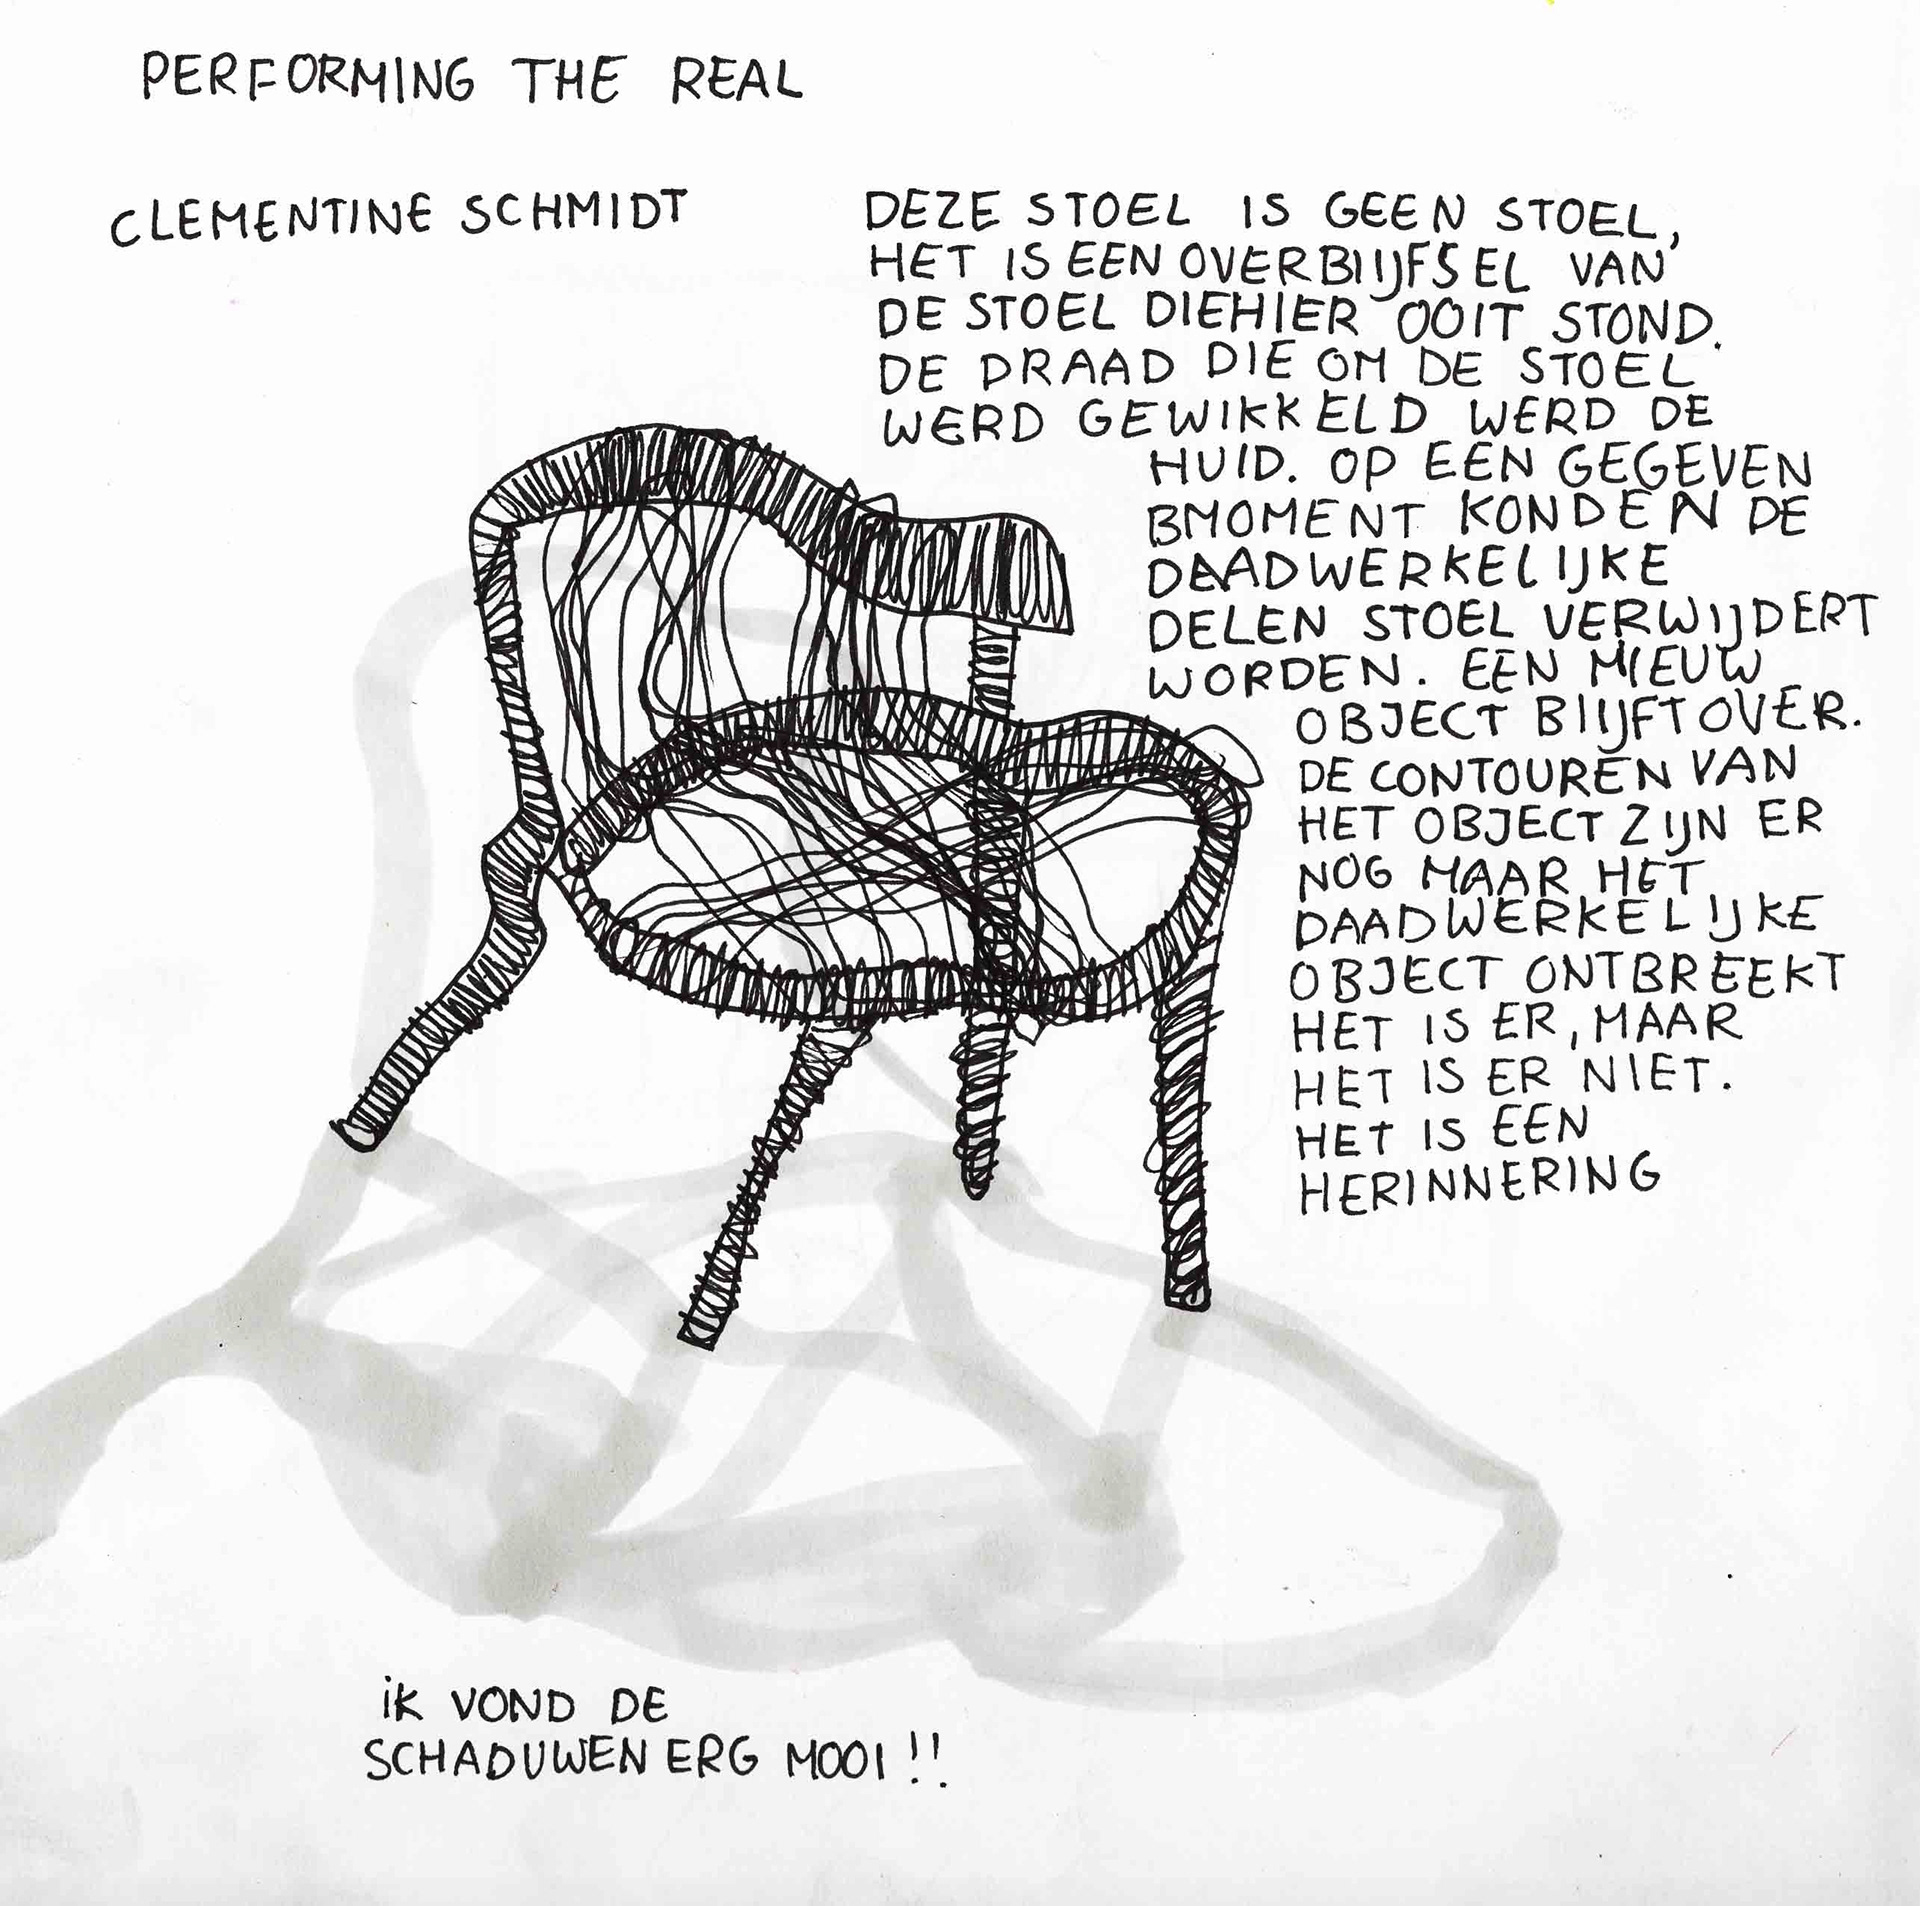 PERFORMING THE REAL
CLEMENTINE SCHMIDT
DEZE STOEL IS GEEN STOEL,
HET IS EEN OVERBLIJFSEL VAN
DE STOEL DIEHIER OOIT STOND.
DE DRAAD DIE OM DE STOEL
WERD GEWIKKELD WERD DE
HUID. OP EEN GEGEVEN
BMOMENT KONDEN DE
DAADWERKELIJKE
DELEN STOEL VERWIJDERT
WORDEN. EEN NIEUW
OBJECT BLIJFT OVER.
DE CONTOUREN VAN
HET OBJECT ZIJN ER
NOG MAAR HET
DAADWERKELIJKE
OBJECT ONTBREEKT
HET IS ER, MAAR
HET IS ER NIET.
HET IS EEN
HERINNERING
iK VOND DE
SCHADUWEN ERG MOOI !!